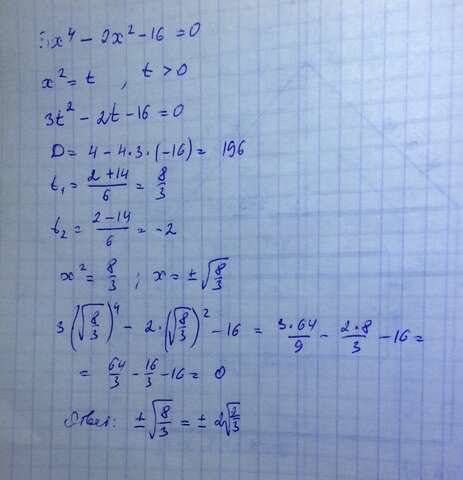 3x⁴ − 2x² − 16 = 0
x² = t , t > 0
3t² − 2t − 16 = 0
D = 4 − 4·3·(−16) = 196
t₁ = (2+14)/6 = 8/3
t₂ = (2−14)/6 = −2
x² = 8/3 ; x = ±√(8/3)
3(√(8/3))⁴ − 2·(√(8/3))² − 16 = (3·64)/9 − (2·8)/3 − 16 =
= 64/3 − 16/3 − 16 = 0
Ответ: ±√(8/3) = ±2√(2/3)